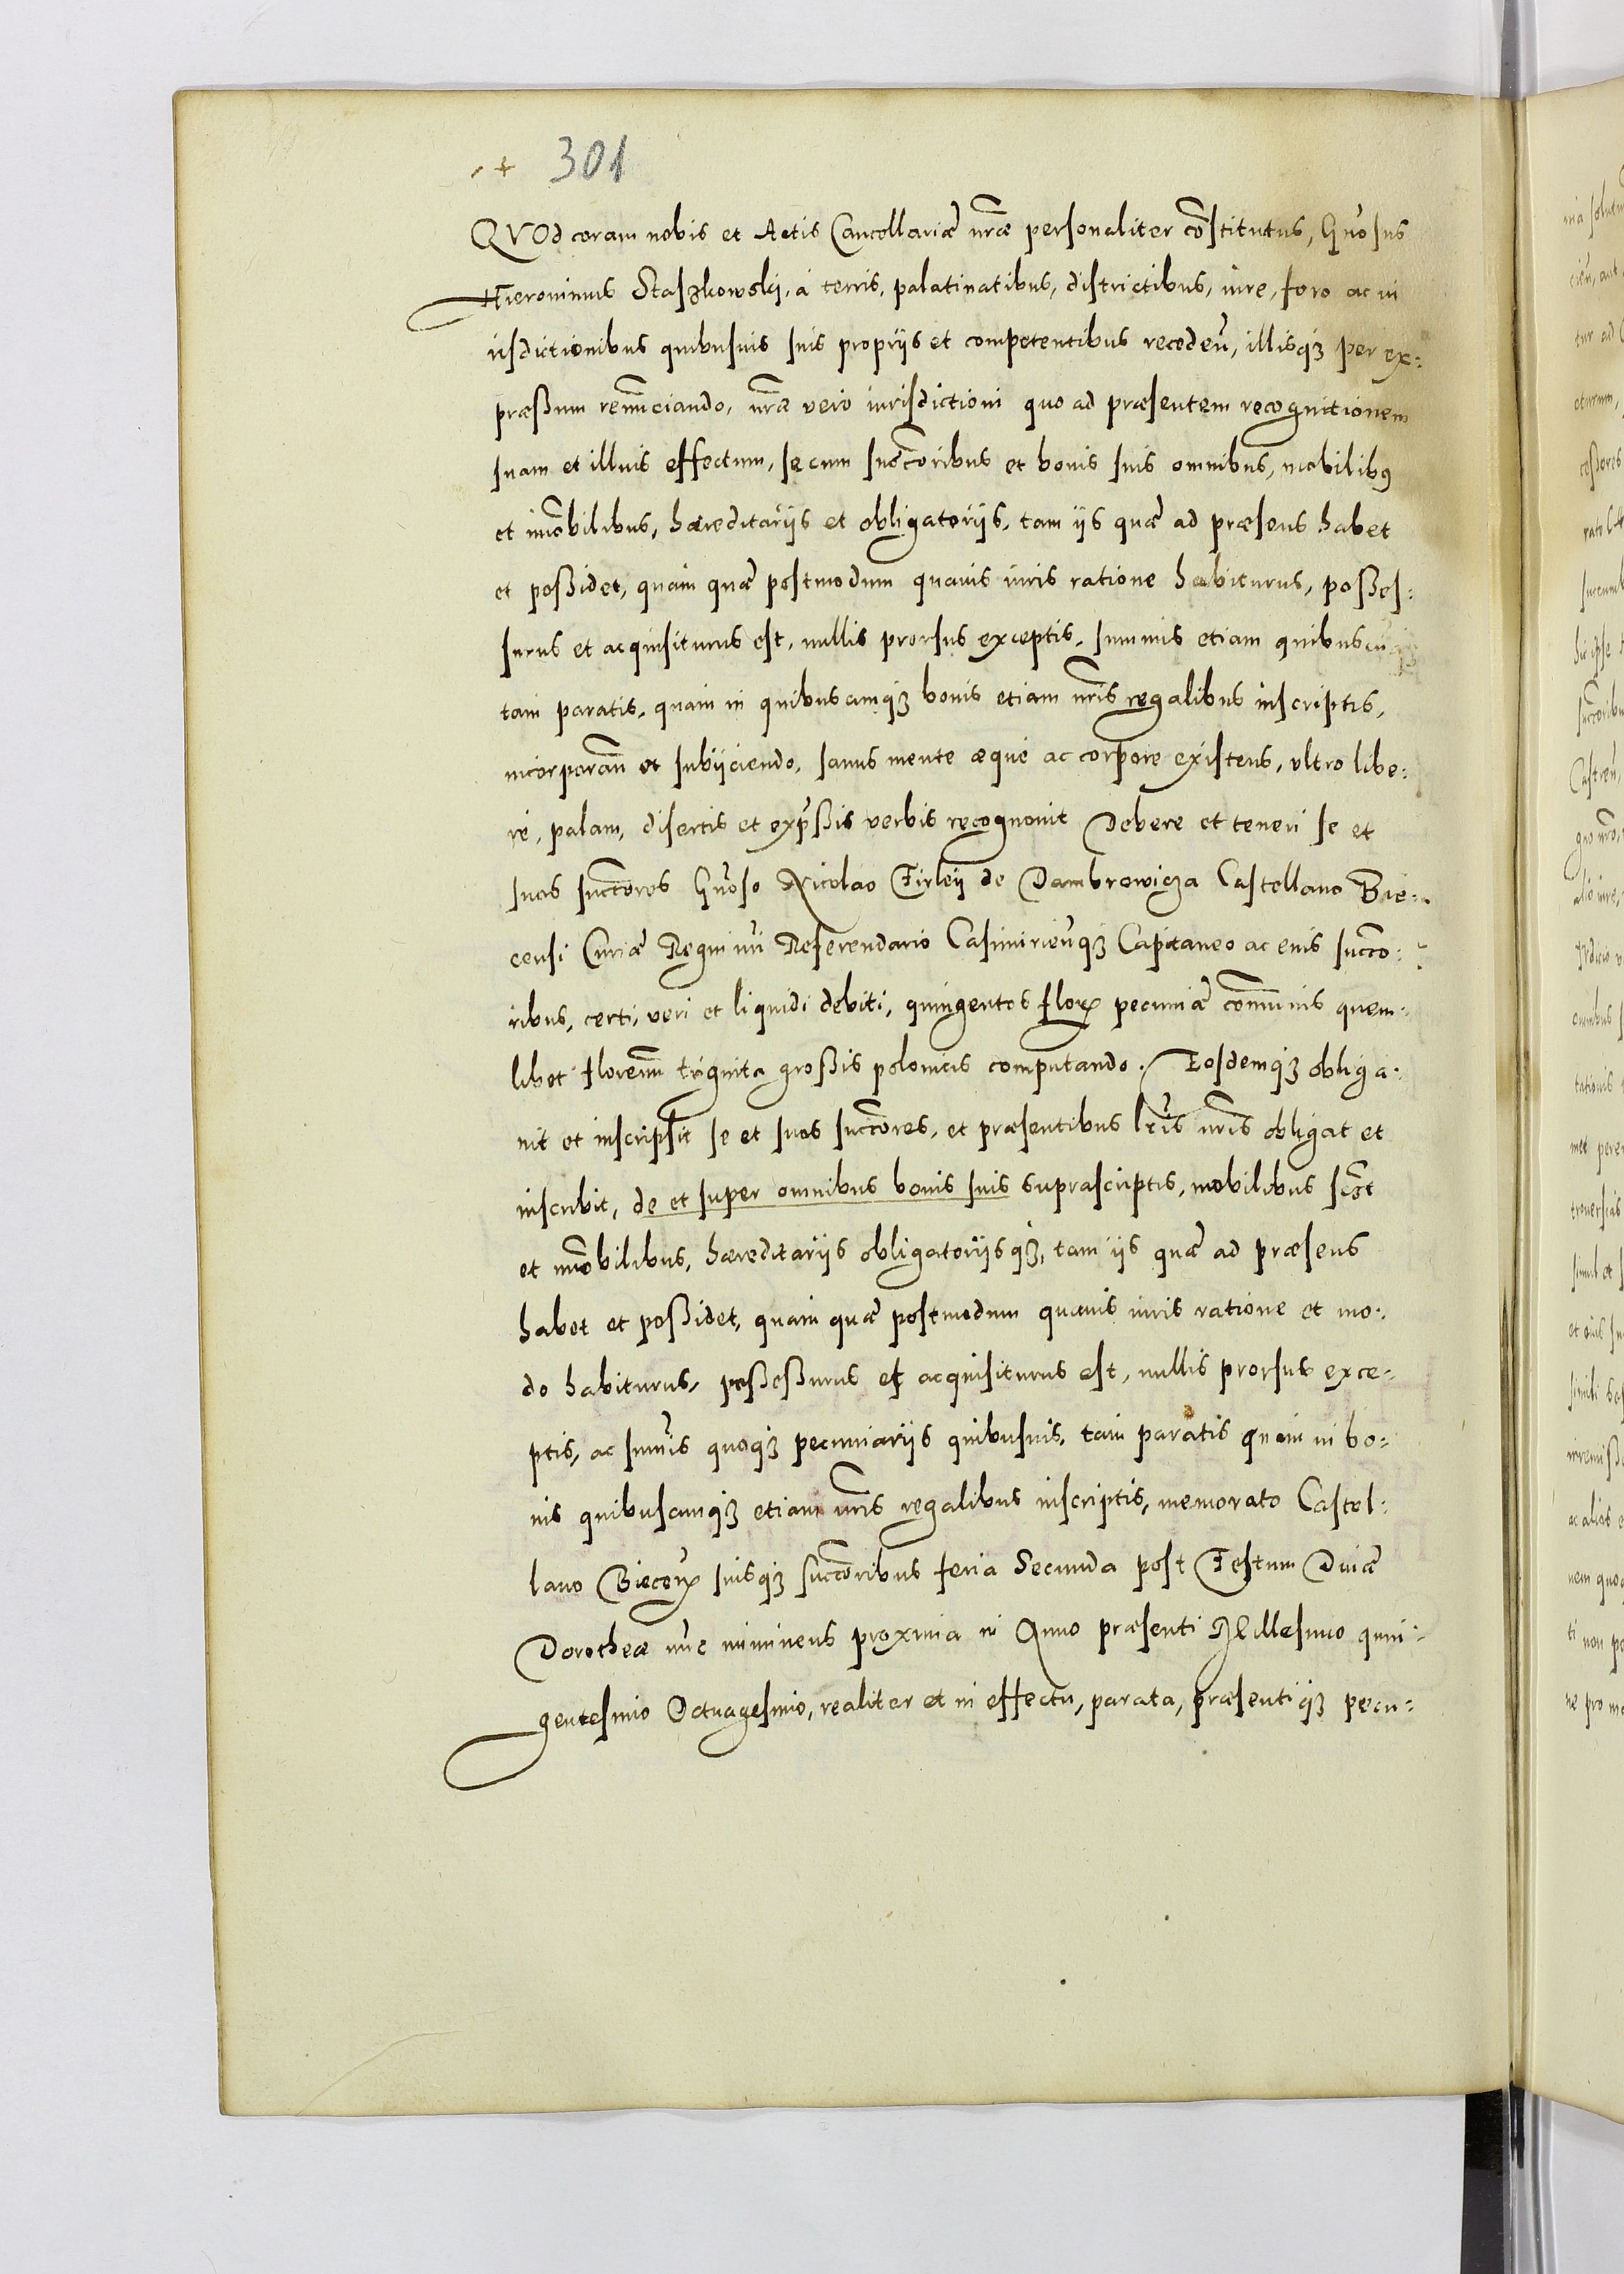 301
QVOd coram nobis et Actis Cancellariæ nr̃æ personaliter cõstitutus, Gnõsus
Hieronimus Staszkowski, à terris, palatinatibus, districtibus, iure, foro ac iu
risdictionibus quibusuis suis proprijs et competentibus recedeñ, illisqꝫ per ex:
præßum renũciando, nr̃æ vero iurisdictioni quo ad præsentem recognitionem
suam et illius effectum, se cum suc̃coribus et bonis suis omnibus, mobilibꝯ
et im̃obilibus, hæreditarijs et obligatorijs, tam ijs quæ ad præsens habet
et poßidet, quàm quæ postmodum quauis iuris ratione habiturus, poßes:
surus et acquisiturus est, nullis prorsus exceptis, summis etiam quibuscũqꝫ
tam paratis, quàm in quibuscumqꝫ bonis etiam nr̃is regalibus inscriptis,
incorporañ et subijciendo, sanus mente æque ac corpore existens, vltro libe:
rè, palam, disertis et exp̃ßis verbis recognouit Debere et teneri se et
suos suc̃cores Gnõso Nicolao Firleij de Dambrowicza Castellano Bie:
censi Curiæ Regni nr̃i Referendario Casimirieñqꝫ Capitaneo ac eius suc̃co:
ribus, certi, veri et liquidi debiti, quingentos floꝝ pecuniæ com̃unis quem:
libet florenũ triginta großis polonicis computando. Eosdemqꝫ obliga:
uit et inscripsit se et suos suc̃cores, et præsentibus lr̃is nr̃is obligat et
inscribit, de et super omnibus bonis suis suprascriptis, mobilibus sc̃et
et im̃obilibus, hæreditarijs obligatorijsqꝫ, tam ijs quæ ad præsens
habet et poßidet, quàm quæ postmodum quauis iuris ratione et mo:
do habiturus, poßeßurus et acquisiturus est, nullis prorsus exce:
ptis, ac sum̃is quoqꝫ pecuniarijs quibusuis, tam paratis quàm in bo:
nis quibuscumqꝫ etiam nr̃is regalibus inscriptis, memorato Castel:
lano Bieceñ suisqꝫ suc̃coribus feria Secunda post Festum Diuæ
Dorotheæ nũc imminens proxima in Anno præsenti Millesimo quin:
gentesimo Octuagesimo, realiter et in effectu, parata, præsentiqꝫ pecu: